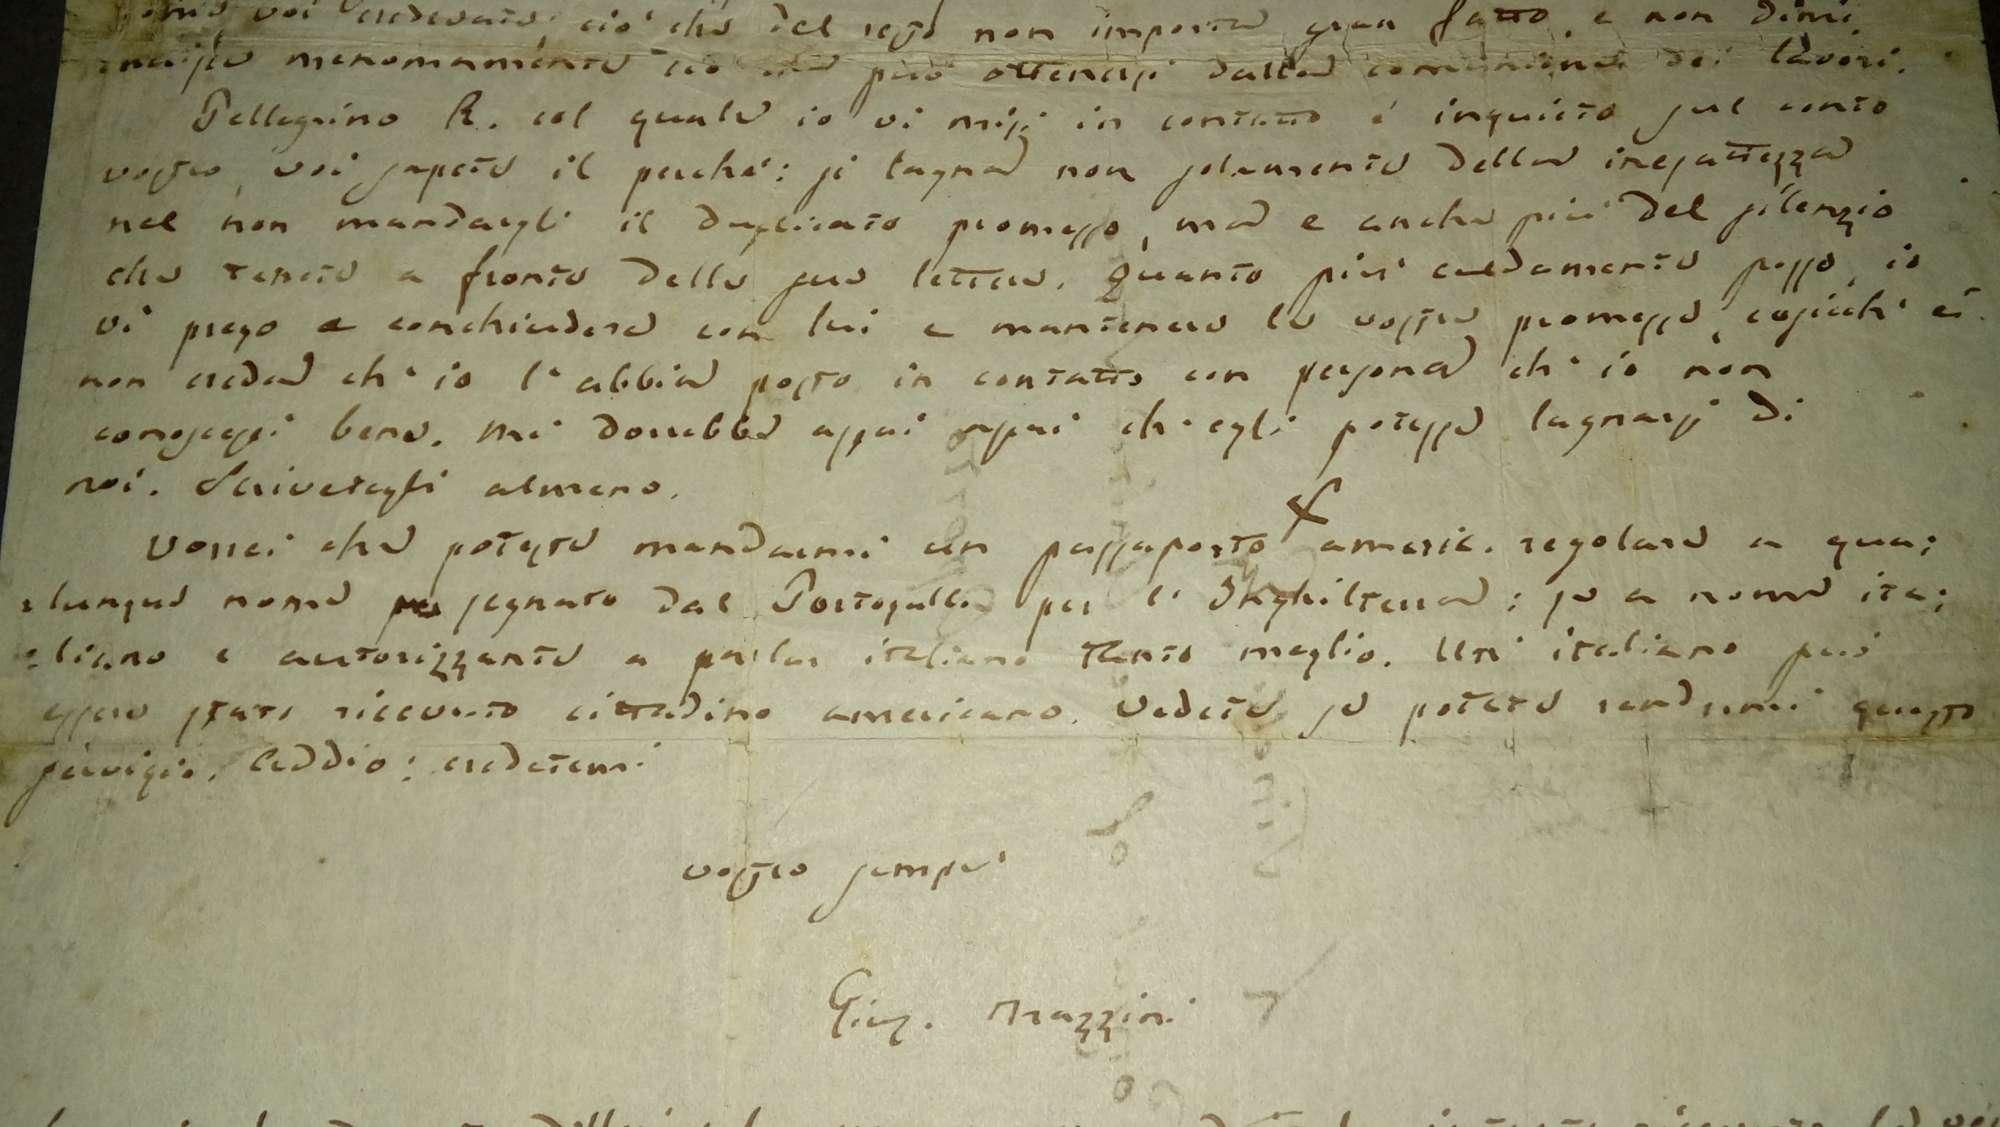 voi credevate; ciò che del resto non importa gran fatto, e non dimi
nuisce menomamente ciò che può ottenersi dalla comunione dei lavori.
Pellegrino R. col quale io vi misi in contatto è inquieto sul conto
vostro, voi sapete il perchè: si lagna non solamente della inesattezza
nel non mandargli il duplicato promesso, ma e anche più del silenzio
che tenete a fronte delle sue lettere. Quanto più caldamente posso, io
vi prego a conchiudere con lui e mantenere le vostre promesse, cosicch' ei
non creda ch' io l' abbia posto in contatto con persona ch' io non
conoscessi bene. Mi dorrebbe assai assai ch' egli potesse lagnarsi di
noi. Scrivetegli almeno.
Vorrei che poteste mandarmi un passaporto americ. regolare a qua;
lunque nome segnato dal Portogallo per l' Inghilterra; se a nome ita;
liano e autorizzante a parlar italiano tanto meglio. Un' italiano può
essere stato ricevuto cittadino americano. Vedete se potete rendermi questo
servigio. Addio: credetemi
vostro sempre
Gius. Mazzini